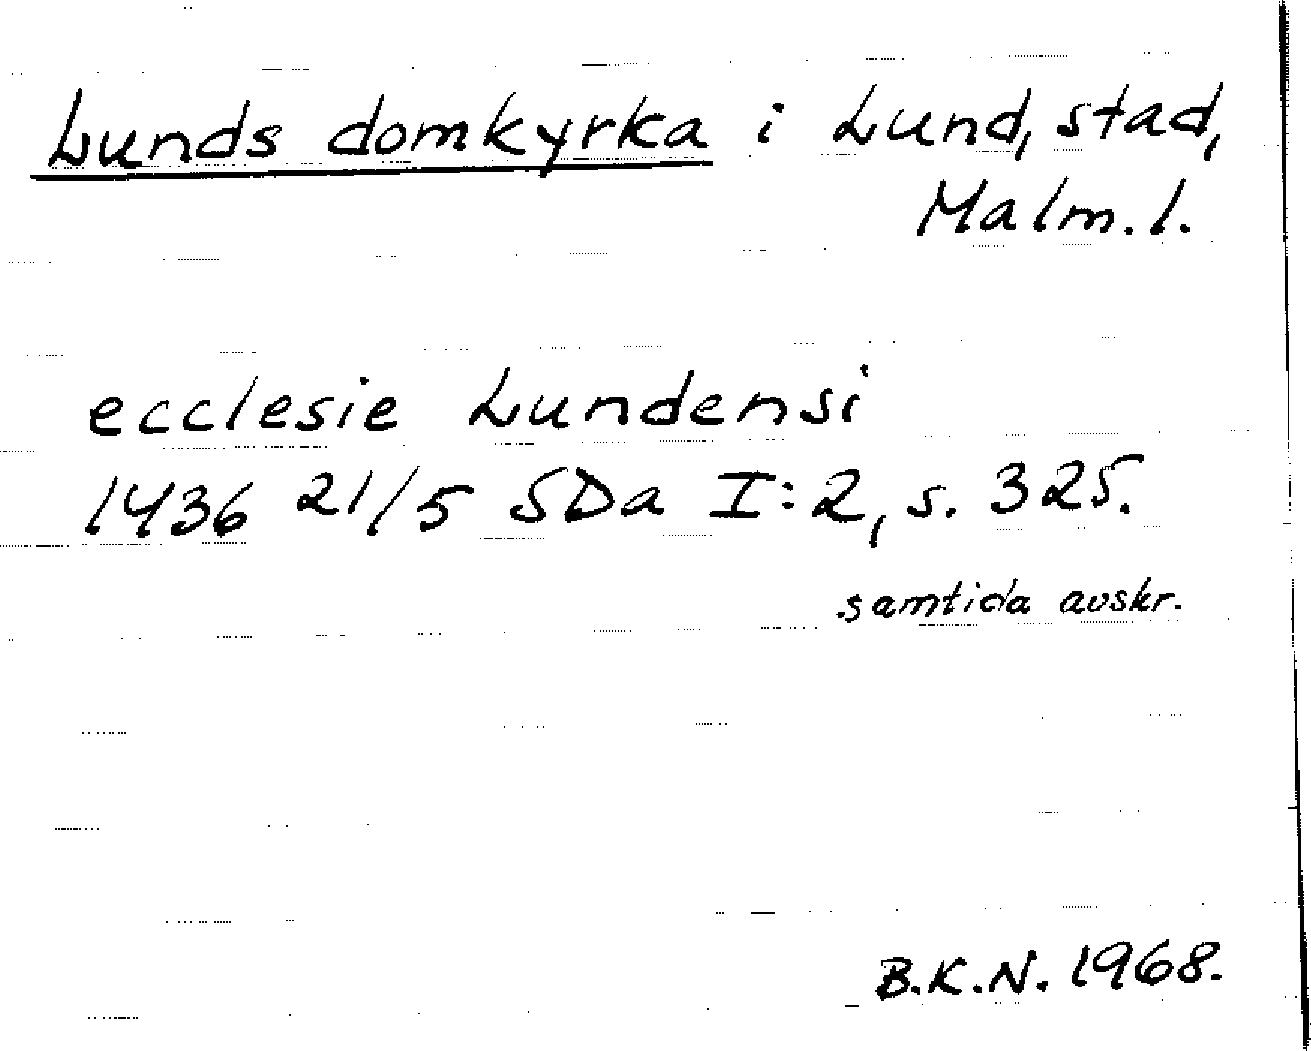 Lunds domkyrka i Lund, stad,
Malm. l.
ecclesie Lundensi
1436 21/5 SDa I:2, s. 325.
samtida avskr.
B.K.N. 1968.